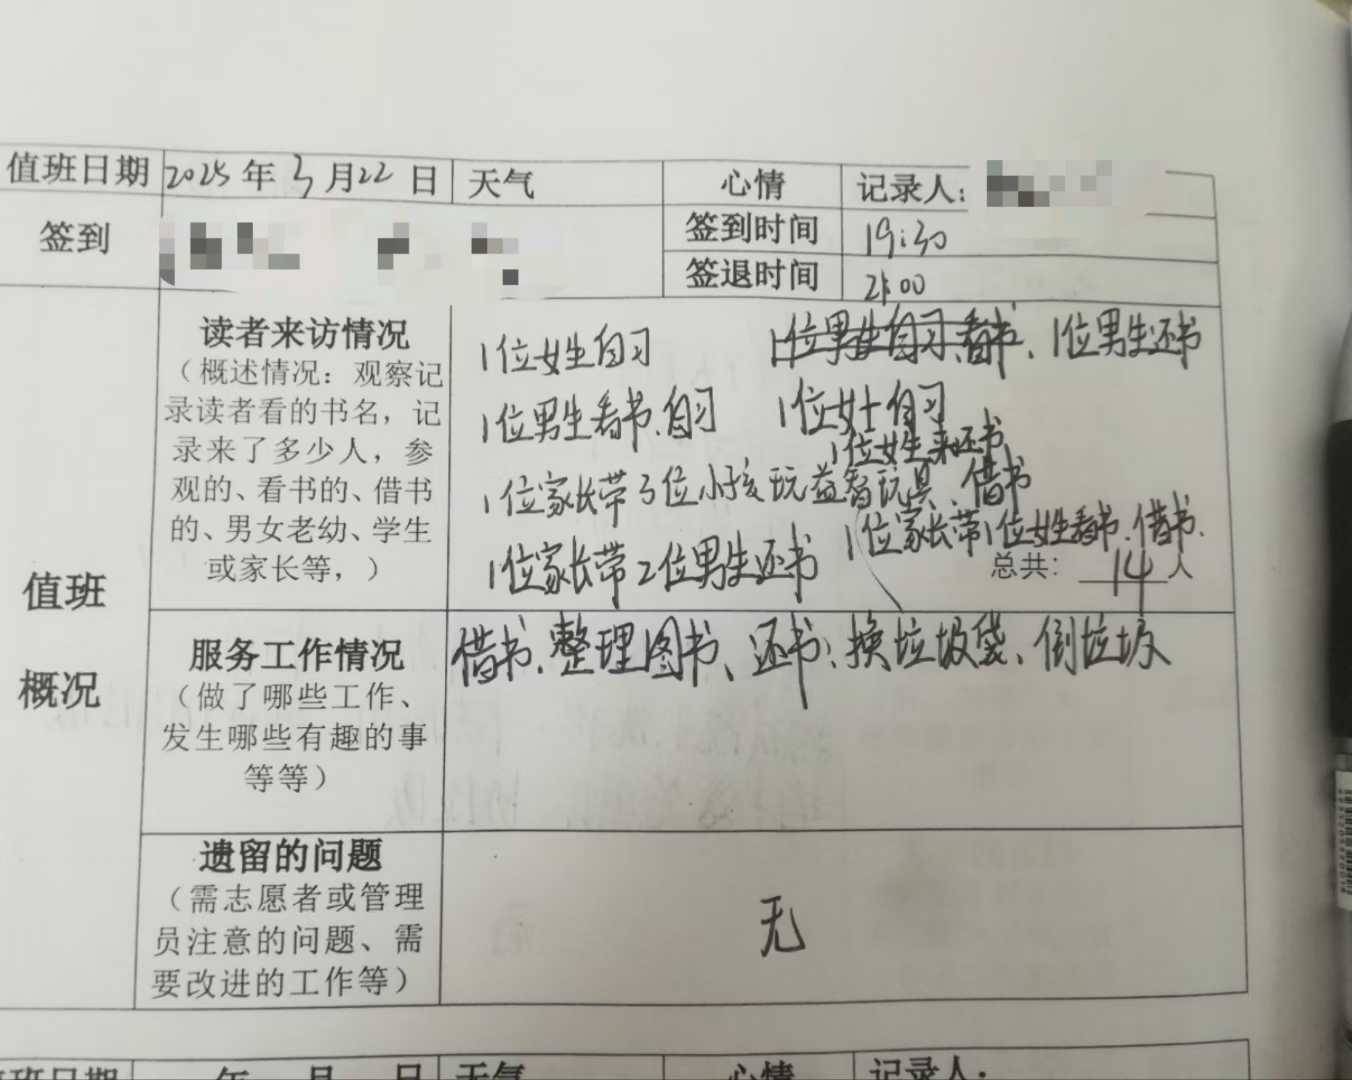 值班日期 2025年3月22日 天气 心情 记录人：
签到 签到时间 19:30
签退时间 21:00
值班
概况
读者来访情况
（概述情况：观察记
录读者看的书名，记
录来了多少人，参
观的、看书的、借书
的、男女老幼、学生
或家长等，）
1位女生自习 1位男生自习、看书、1位男生还书
1位男生看书、自习 1位女士自习
1位女生来还书
1位家长带3位小孩玩益智玩具、借书
1位家长带2位男生还书 1位家长带1位女生看书、借书.
总共：14人
服务工作情况
（做了哪些工作、
发生哪些有趣的事
等等）
借书、整理图书、还书、换垃圾袋、倒垃圾
遗留的问题
（需志愿者或管理
员注意的问题、需
要改进的工作等）
无
值班日期 年 月 日 天气 心情 记录人：